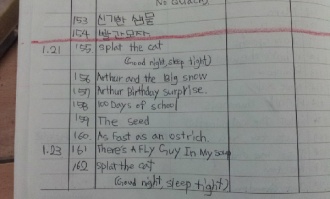 153 신기한 식물
154 빨간 모자
1.21 155 splat the cat
(Good night, sleep tight)
156 Arthur and the big snow
157 Arthur Birthday surprise.
158 100 Days of school
159 The seed
160. As Fast as an ostrich.
1.23 161 There's A FLy Guy In My Soup
162 splat the cat
(Good night, sleep tight)